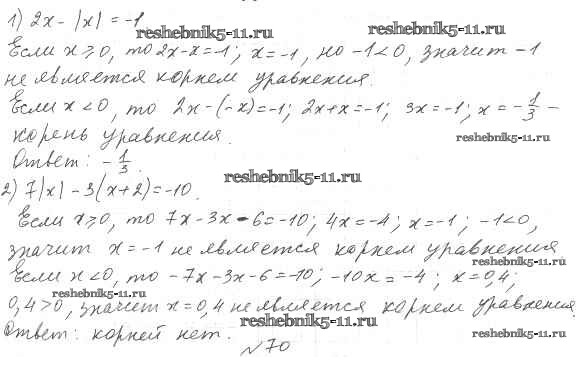 1) 2x - |x| = -1
reshebnik5-11.ru
reshebnik5-11.ru
Если x ≥ 0, то 2x-x=-1; x=-1, но -1<0, значит -1
не является корнем уравнения.
Если x < 0, то 2x-(-x)=-1; 2x+x=-1; 3x=-1; x = -1/3 -
корень уравнения.
reshebnik5-11.ru
Ответ: -1/3.
reshebnik5-11.ru
2) 7|x| - 3(x+2)=-10.
Если x≥0, то 7x-3x-6=-10; 4x=-4; x=-1; -1<0,
значит x=-1 не является корнем уравнения
reshebnik5-11.ru
Если x<0, то -7x-3x-6=-10; -10x=-4; x=0,4;
reshebnik5-11.ru
0,4>0, значит x=0,4 не является корнем уравнения.
reshebnik5-11.ru
Ответ: корней нет.
reshebnik5-11.ru
№70